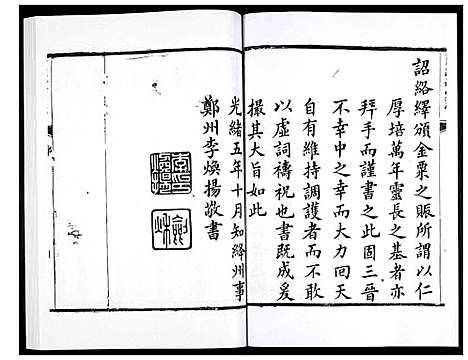 詔絡繹頒金粟之賑所謂以仁
厚培萬年靈長之基者亦
拜手而謹書之此固三晉
不幸中之幸而大力回天
自有維持調護者而不敢
以虛詞禱祝也書既成爰
撮其大旨如此
光緒五年十月知絳州事
鄭州李煥揚敬書